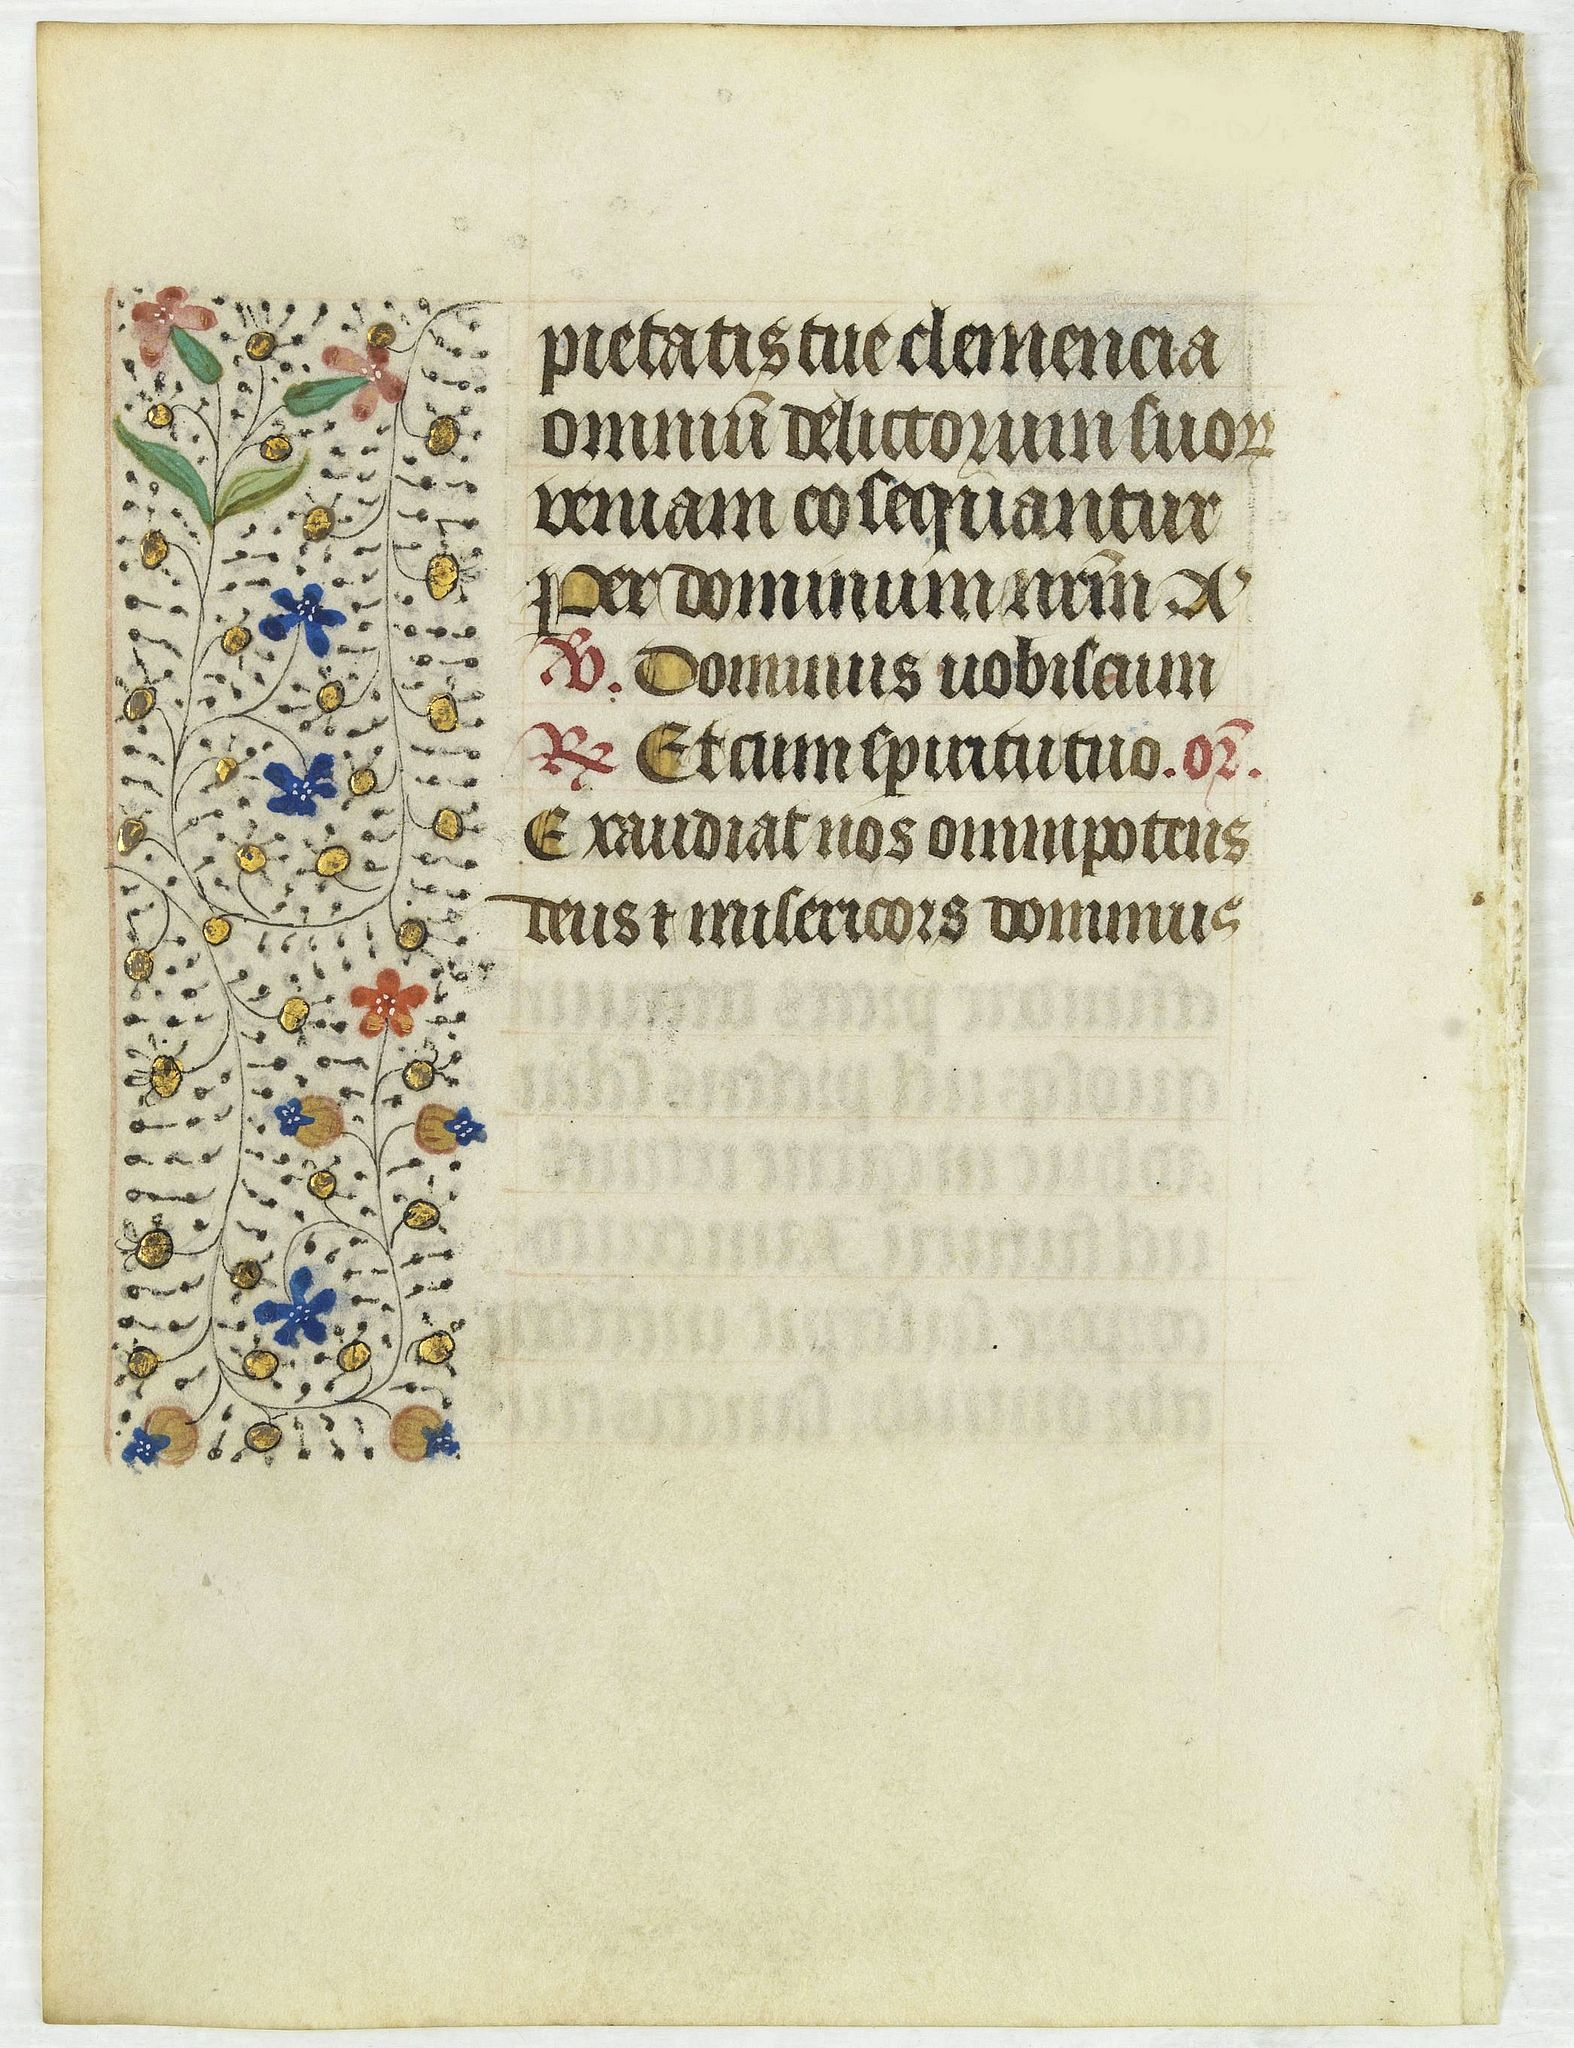 pietatis tue clemencia
omniu͞ delictorum suoꝝ
veniam cosequantur
Per dominum nrm̄ Xˢ
℣. Dominus uobiscum
℟ Et cum spiritu tuo. or̄.
Exaudiat nos omnipotens
deus ⁊ misericors dominus